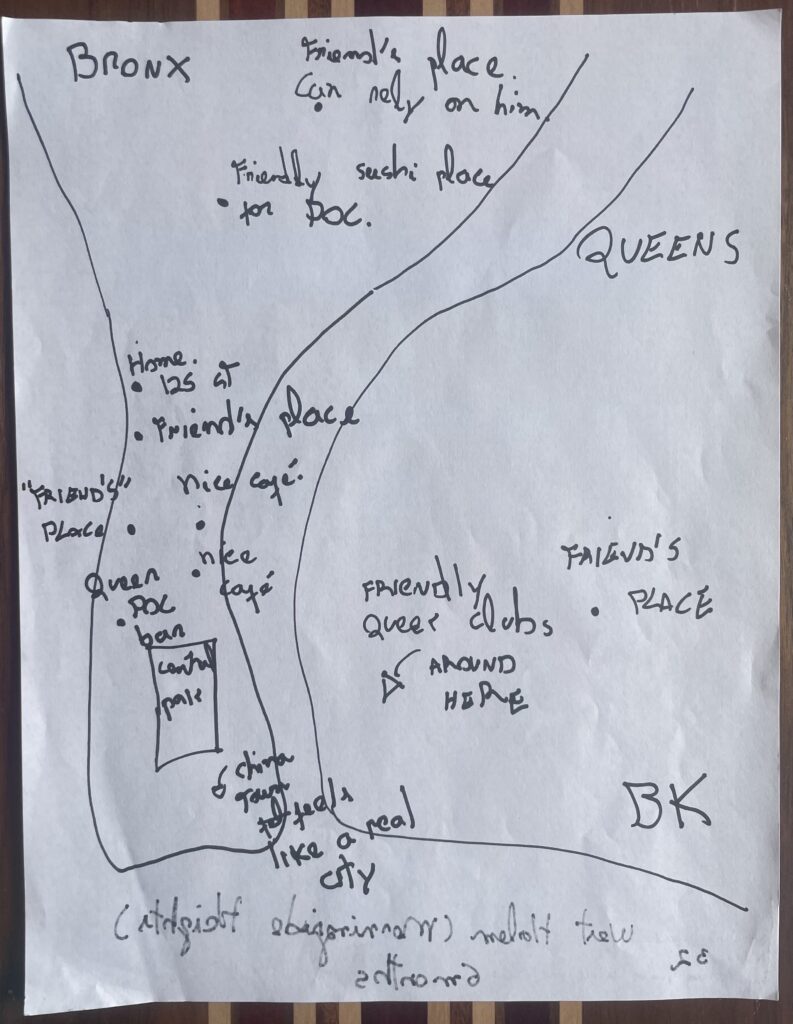 BRONX
Friend's place.
Can rely on him.
Friendly sushi place
for POC.
QUEENS
Home.
125 ST
Friend's place
nice café.
"FRIEND'S"
PLACE
nice
café
Queer
POC
bar
central
park
FRIENDLY
QUEER clubs
AROUND
HERE
FRIEND'S
PLACE
china
town
feels
like a real
city
BK
West Harlem (Morningside Heights)
32
6 months